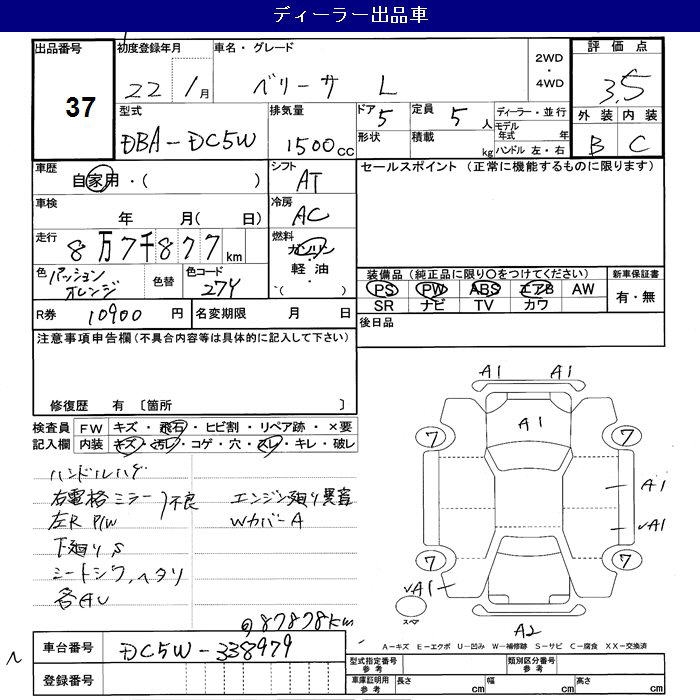 ディーラー出品車
出品番号 37
初度登録年月 22 / 1月
車名・グレード ベリーサ L
2WD・4WD
評価点 3.5
外装 B 内装 C
型式 DBA-DC5W
排気量 1500cc
ドア 5
形状
定員 5人
積載 kg
ディーラー・並行
モデル年式 年
ハンドル 左・右
車歴 自家用・( )
シフト AT
セールスポイント (正常に機能するものに限ります)
車検 年 月( 日)
冷房 AC
走行 8万7千877km
燃料 ガソリン・軽油・( )
色 パッションオレンジ
色替
色コード 27Y
装備品(純正品に限り○をつけてください)
PS PW ABS エアB AW
SR ナビ TV カワ
新車保証書 有・無
R券 10900円
名変期限 月 日
後日品
注意事項申告欄(不具合内容等は具体的に記入して下さい)
修復歴 有 〔箇所 〕
検査員記入欄
FW キズ・飛石・ヒビ割・リペア跡・×要
内装 キズ・汚レ・コゲ・穴・スレ・キレ・破レ
ハンドルハゲ
右電格ミラー 不良 エンジン廻り異音
左R P/W WカバーA
下廻りS
シートシワ、ヘタリ
各AU
@87878km
A1 A1
A1
7 7
A1
√A1
7 7
√A1
スペア
A2
A-キズ E-エクボ U-凹み W-補修跡 S-サビ C-腐食 XX-交換済
車台番号 DC5W-338979
登録番号
型式指定番号参考
類別区分番号参考
車庫証明用参考 長さ cm 幅 cm 高さ cm